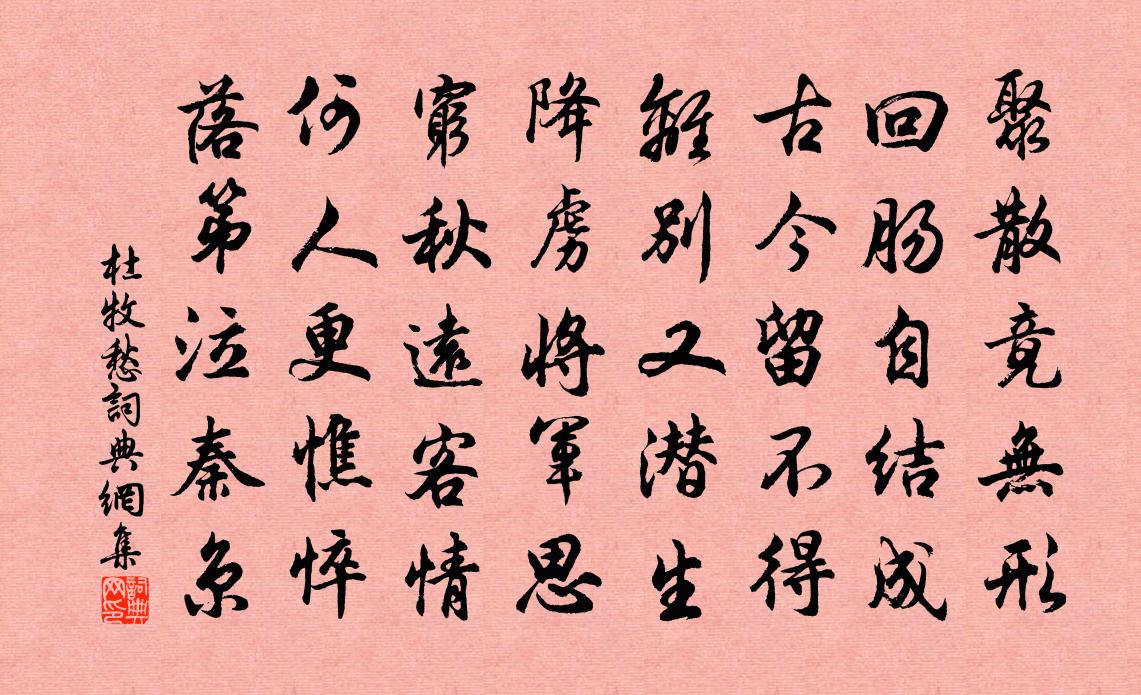 聚散竟無形
回肠自结成
古今留不得
離别又潜生
降虜將軍思
窮秋遠客情
何人更憔悴
落第泣秦京
杜牧愁詞典網集
詞典网印